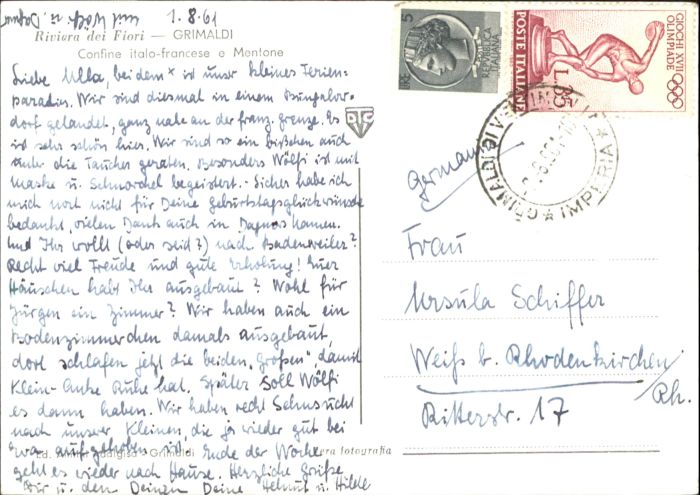 1.8.61
Riviera dei Fiori — GRIMALDI
Confine italo-francese e Mentone
Liebe Ulla, bei dem x ist unser kleines Ferien-
paradies. Wir sind diesmal in einem Bungalow-
dorf gelandet, ganz nahe an der franz. Grenze. Es
ist sehr schön hier. Wir sind so ein bißchen auch
unter die Taucher geraten. Besonders Wölfi ist mit
Maske u. Schnorchel begeistert. - Sicher habe ich
mich noch nicht für Deine Geburtstagsglückwünsche
bedankt, vielen Dank auch in Dagmars Namen.
Und Ihr wollt (oder seid?) nach Badenweiler?
Recht viel Freude und gute Erholung! Euer
Häuschen habt Ihr ausgebaut? Wohl für
Jürgen ein Zimmer? Wir haben auch ein
Bodenzimmerchen damals ausgebaut,
dort schlafen jetzt die beiden "Großen", damit
Klein-Anke Ruhe hat. Später soll Wölfi
es dann haben. Wir haben recht Sehnsucht
nach unserer Kleinen, die ja wieder gut bei
aufgehoben ist. Ende der Woche
geht es wieder nach Hause. Herzliche Grüße
Dir u. den Deinen Deine Helmut u. Hilde
Grimaldi
fotografia
5
REPUBBLICA ITALIANA
GIOCHI XVII OLIMPIADE
L.35
POSTE ITALIANE
GRIMALDI DI VENTIMIGLIA
* IMPERIA *
Germania
Frau
Ursula Schiffer
Weiß b. Rhodenkirchen/
Rh.
Ritterstr. 17